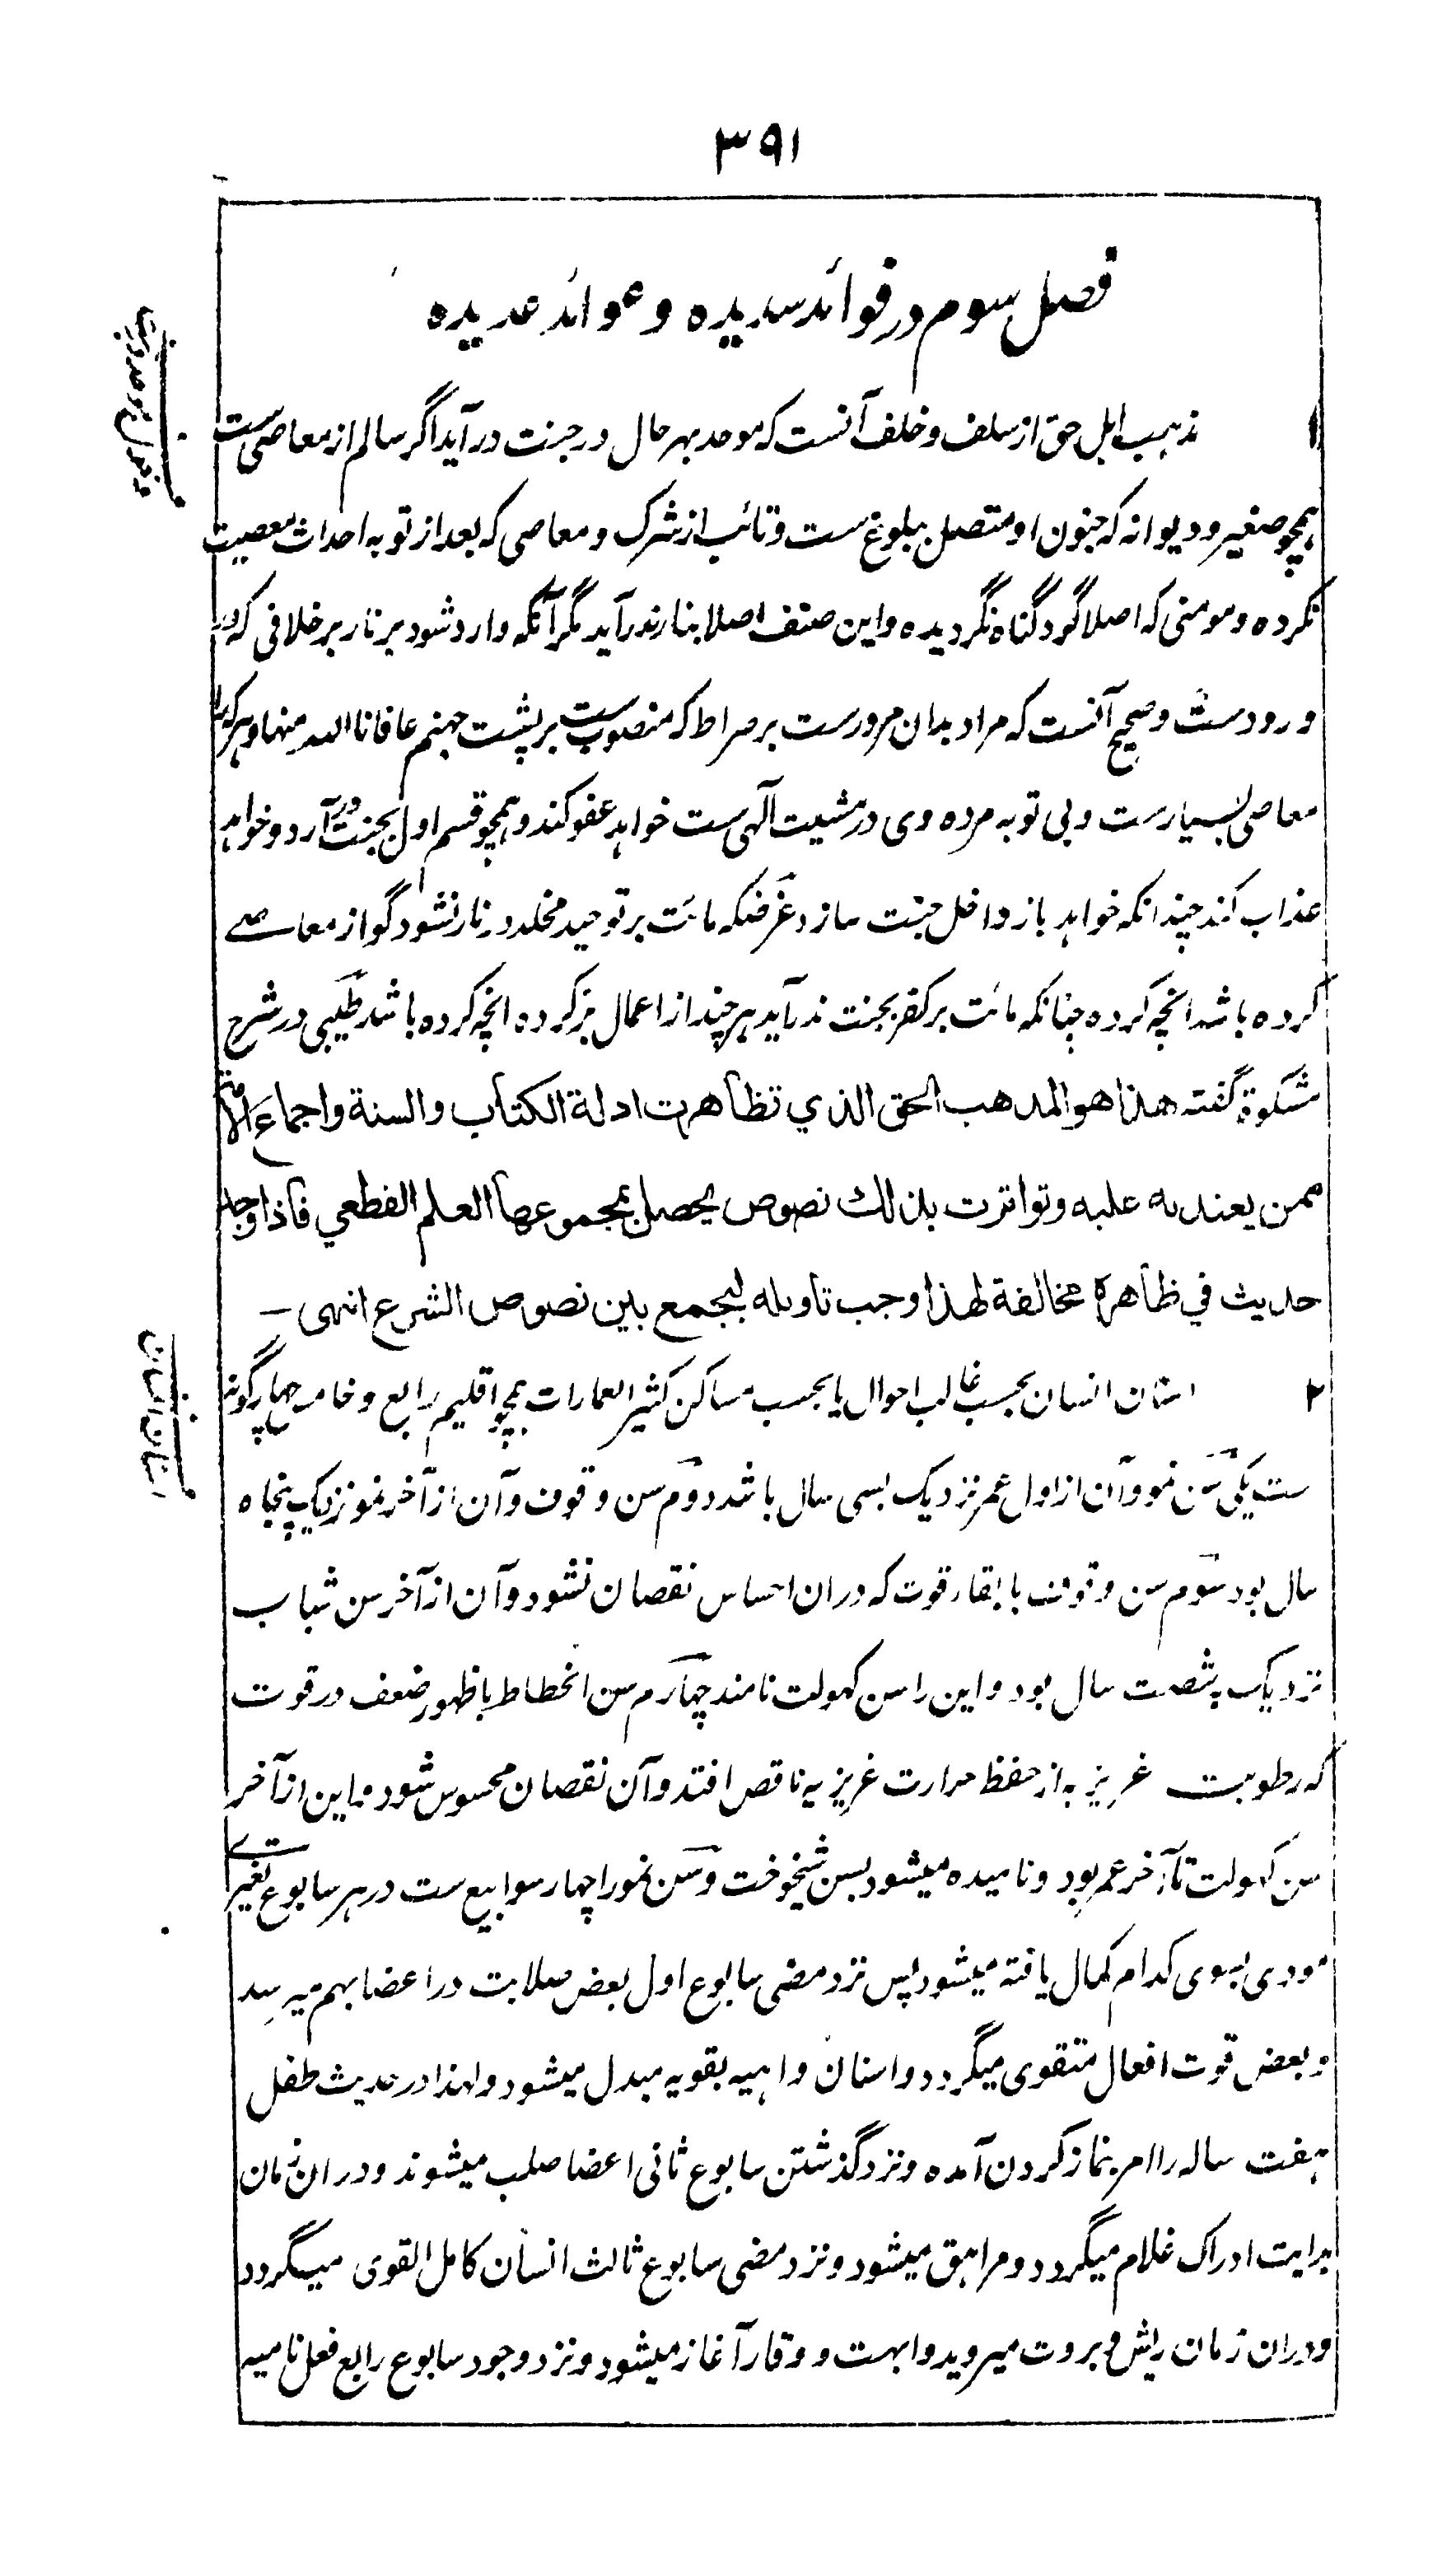 ۳۹۱
فصل سوم در فوائد سدیده و عوائد عدیده
دخول موحد در جنت
۱ مذہب اہل حق از سلف و خلف آنست کہ موحد بہر حال در جنت در آید اگر سالم از معاصی ست
ہمچو صغیر و دیوانہ کہ جنون او متصل ببلوغ ست و تائب از شرک و معاصی کہ بعد از توبہ احداث معصیت
نکردہ و مومنی کہ اصلا گرد گناہ نگردیدہ و این صنف اصلا بنار ندر آید مگر آنکہ وارد شود بر نار بر خلافی کہ در
ورودست و صحیح آنست کہ مراد بدان مرورست بر صراط کہ منصوب ست بر پشت جہنم عافانا اللہ منہا و ہر کہ را
معاصی بسیارست و بی توبہ مردہ وی در مشیت آلہی ست خواہد عفو کند و ہمچو قسم اول بجنت در آرد و خواہد
عذاب کند چندانکہ خواہد باز داخل جنت سازد غرضکہ مائت بر توحید مخلد در نار نشود گو از معاصے
کردہ باشد انچہ کردہ چنانکہ مائت بر کفر بجنت ندر آید ہر چند از اعمال بر کردہ انچہ کردہ باشد طیبی در شرح
مشکوة گفتہ هذا هو المذهب الحق الذي تظاهرت ادلة الكتاب والسنة واجماع الامة
ممن يعتد به عليه وتواترت بذلك نصوص يحصل بمجموعها العلم القطعي فاذا وجد
حديث في ظاهره مخالفة لهذا وجب تاويله ليجمع بين نصوص الشرع انتهى –
اسنان انسان
۲ اسنان انسان بحسب غالب احوال یا بحسب مساکن کثیر العمارات ہمچو اقلیم رابع و خامس چہار گونہ
ست یکی سن نمو و آن از اول عمر نزدیک بسی سال باشد دوم سن وقوف و آن از آخر نمو نزدیک پنجاہ
سال بود سوم سن وقوف با بقاء قوت کہ دران احساس نقصان نشود و آن از آخر سن شباب
نزدیک بشصت سال بود و این را سن کہولت نامند چہارم سن انحطاط با ظہور ضعف در قوت
کہ رطوبت غریزیہ از حفظ حرارت غریزیہ ناقص افتد و آن نقصان محسوس شود و این از آخر
سن کہولت تا آخر عمر بود و نامیدہ میشود بسن شیخوخت و سن نمو را چہار سوابیع ست در ہر سابوع تغیرے ست
مودی بسوی کدام کمال یافتہ میشود پس نزد مضی سابوع اول بعض صلابت در اعضا بہم میرسد
و بعض قوت افعال متقوی میگردد و اسنان واہیہ بقویہ مبدل میشود و لہذا در حدیث طفل
ہفت سالہ را امر بنماز کردن آمدہ و نزد گذشتن سابوع ثانی اعضا صلب میشوند و دران زمان
بدایت ادراک غلام میگردد و مراہق میشود و نزد مضی سابوع ثالث انسان کامل القوی میگردد
و دران زمان ریش و بروت میروید و ابہت و وقار آغاز میشود و نزد وجود سابوع رابع فعل نامیہ